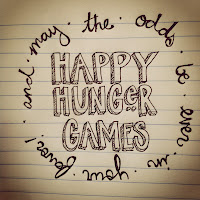 HAPPY
HUNGER
GAMES
and may the odds be ever in your favor!